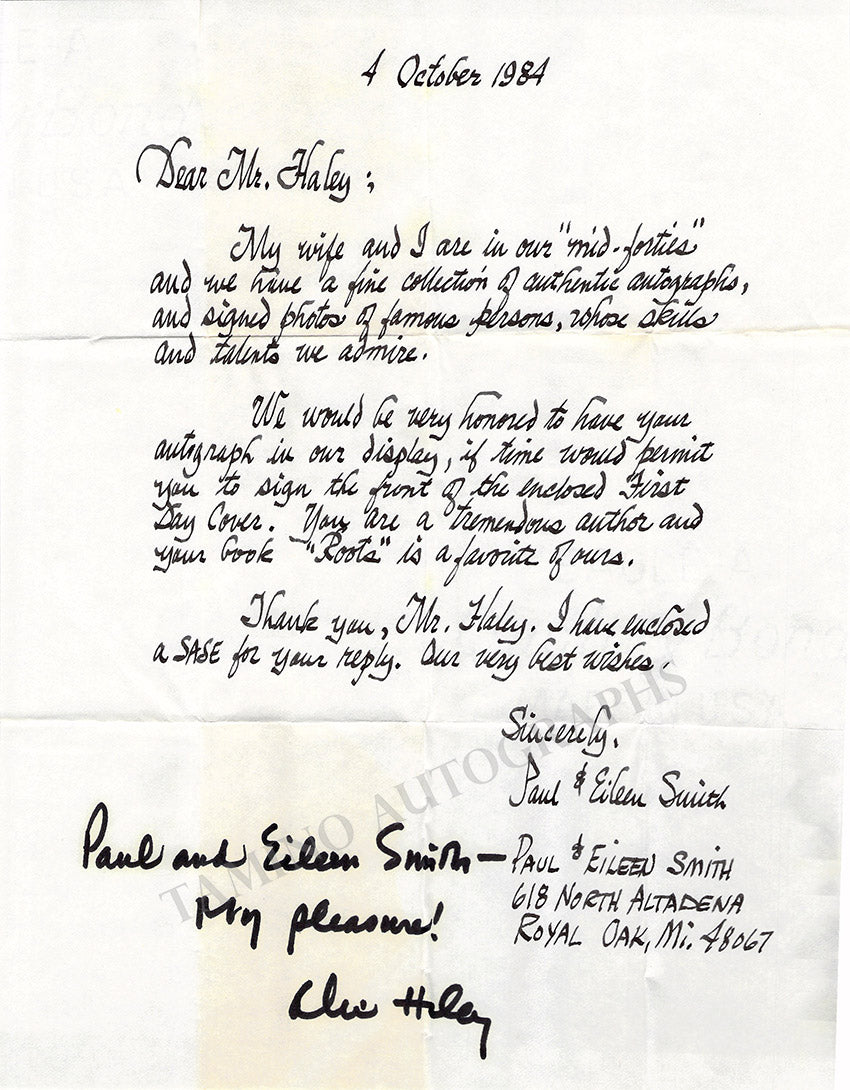 4 October 1984
Dear Mr. Haley:
My wife and I are in our "mid-forties"
and we have a fine collection of authentic autographs,
and signed photos of famous persons, whose skills
and talents we admire.
We would be very honored to have your
autograph in our display, if time would permit
you to sign the front of the enclosed First
Day Cover. You are a tremendous author and
your book "Roots" is a favorite of ours.
Thank you, Mr. Haley. I have enclosed
a SASE for your reply. Our very best wishes.
Sincerely,
Paul & Eileen Smith
Paul and Eileen Smith—
My pleasure!
Alex Haley
PAUL & EILEEN SMITH
618 NORTH ALTADENA
ROYAL OAK, Mi. 48067
TAMINO AUTOGRAPHS